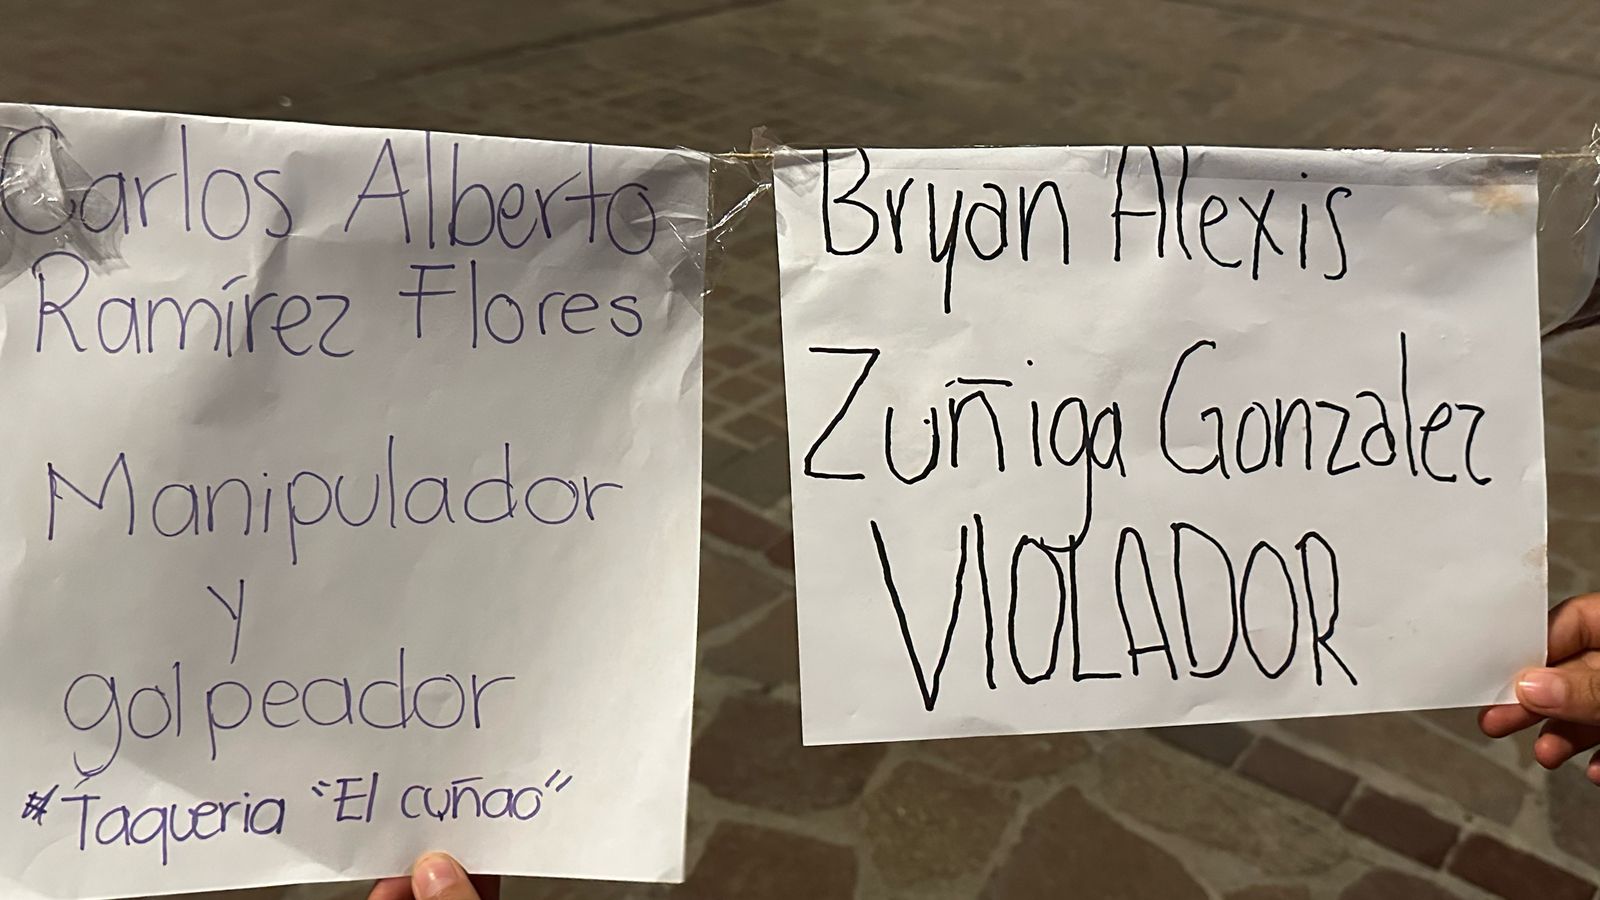 Carlos Alberto
Ramírez Flores
Manipulador
y
golpeador
#Taqueria "El cuñao"
Bryan Alexis
Zuñiga Gonzalez
VIOLADOR